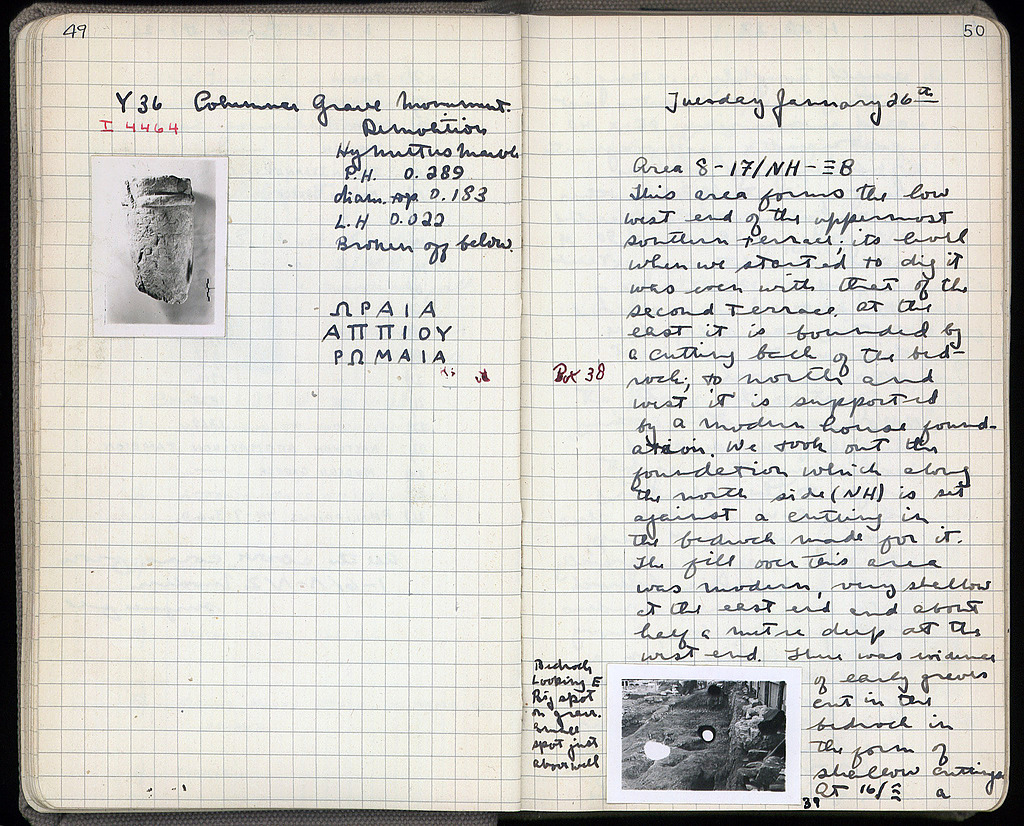 49
Y 36 Columnar Grave Monument.
I 4464
Demolition
Hymettus Marble
P.H. 0.289
diam. top 0.183
L.H 0.022
Broken off below.
ΩΡΑΙΑ
ΑΠΠΙΟΥ
ΡΩΜΑΙΑ
50
Tuesday January 26th
Area 8-17/ΝΗ-ΞΒ
This area forms the low
west end of the uppermost
southern terrace; its level
when we started to dig it
was even with that of the
second terrace. at the
east it is bounded by
a cutting back of the bed-
rock; to north and
west it is supported
by a modern house found-
ation. We took out the
foundation which along
the north side (NH) is set
against a cutting in
the bedrock made for it.
The fill over this area
was modern, very shallow
at the east end and about
half a metre deep at the
west end. There was evidence
of early graves
cut in the
bedrock in
the form of
shallow cuttings
At 16/Ξ a
38
Bedrock
Looking E
Big spot
on grave.
Small
spot just
above well
39